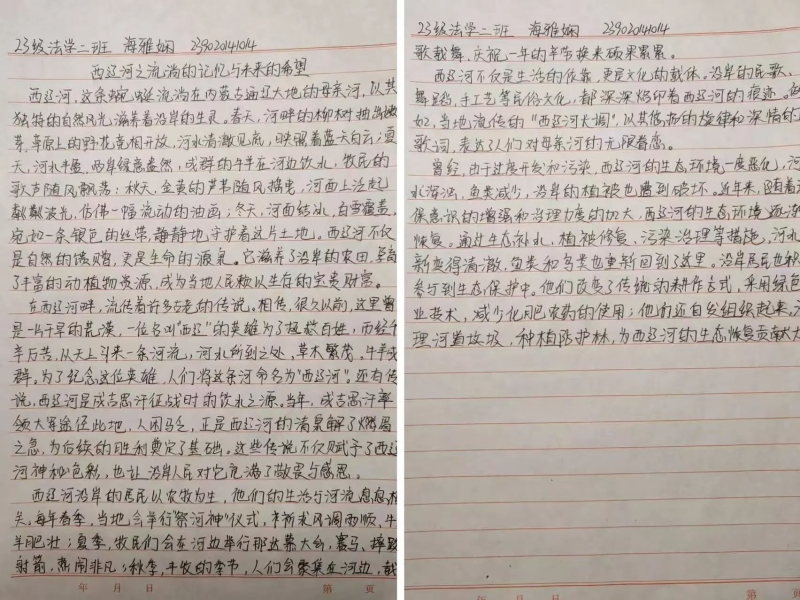 23级法学二班 海雅娴 239020141014
西辽河之流淌的记忆与未来的希望
西辽河,这条蜿蜒流淌在内蒙古通辽大地的母亲河,以其
独特的自然风光,滋养着沿岸的生灵。春天,河畔的柳树抽出嫩
芽,草原上的野花竞相开放,河水清澈见底,映照着蓝天白云;夏
天,河水丰盈,两岸绿意盎然,成群的牛羊在河边饮水,牧民的
歌声随风飘荡;秋天,金黄的芦苇随风摇曳,河面上泛起
粼粼波光,仿佛一幅流动的油画;冬天,河面结冰,白雪覆盖,
宛如一条银色的丝带,静静地守护着这片土地。西辽河不仅
是自然的馈赠,更是生命的源泉。它滋养了沿岸的农田,孕育
了丰富的动植物资源,成为当地人民赖以生存的宝贵财富。
在西辽河畔,流传着许多古老的传说。相传,很久以前,这里曾
是一片干旱的荒漠,一位名叫"西辽"的英雄为了拯救百姓,历经千
辛万苦,从天上引来一条河流,河水所到之处,草木繁茂。牛羊成
群。为了纪念这位英雄,人们将这条河命名为"西辽河"。还有传
说,西辽河是成吉思汗征战时的饮水之源。当年,成吉思汗率
领大军途径此地,人困马乏,正是西辽河的清泉解了燃眉
之急,为后续的胜利奠定了基础。这些传说不仅赋予了西辽
河神秘色彩,也让沿岸人民对它充满了敬畏与感恩。
西辽河沿岸的居民以农牧为生,他们的生活与河流息息相
关。每年春季,当地会举行"祭河神"仪式,祈求风调雨顺、牛
羊肥壮;夏季,牧民们会在河边举行那达慕大会,赛马、摔跤
射箭,热闹非凡;秋季,丰收的季节,人们会聚集在河边,载
年 月 日 第 页
23级法学二班 海雅娴 239020141014
歌载舞,庆祝一年的辛劳换来硕果累累。
西辽河不仅是生活的依靠,更是文化的载体。沿岸的民歌、
舞蹈,手工艺等民俗文化,都深深烙印着西辽河的痕迹。例
如,当地流传的"西辽河大调",以其悠扬的旋律和深情的
歌词,表达了人们对母亲河的无限眷恋。
曾经,由于过度开发和污染,西辽河的生态环境一度恶化,河
水浑浊,鱼类减少,沿岸的植被也遭到破坏。近年来,随着环
保意识的增强和治理力度的加大,西辽河的生态环境逐渐
恢复。通过生态补水,植被修复,污染治理等措施,河水
新变得清澈,鱼类和鸟类也重新回到了这里。沿岸居民也积
参与到生态保护中。他们改变了传统的耕作方式,采用绿色
业技术,减少化肥农药的使用;他们还自发组织起来,
理河道垃圾,种植防护林,为西辽河的生态恢复贡献
年 月 日 第 页